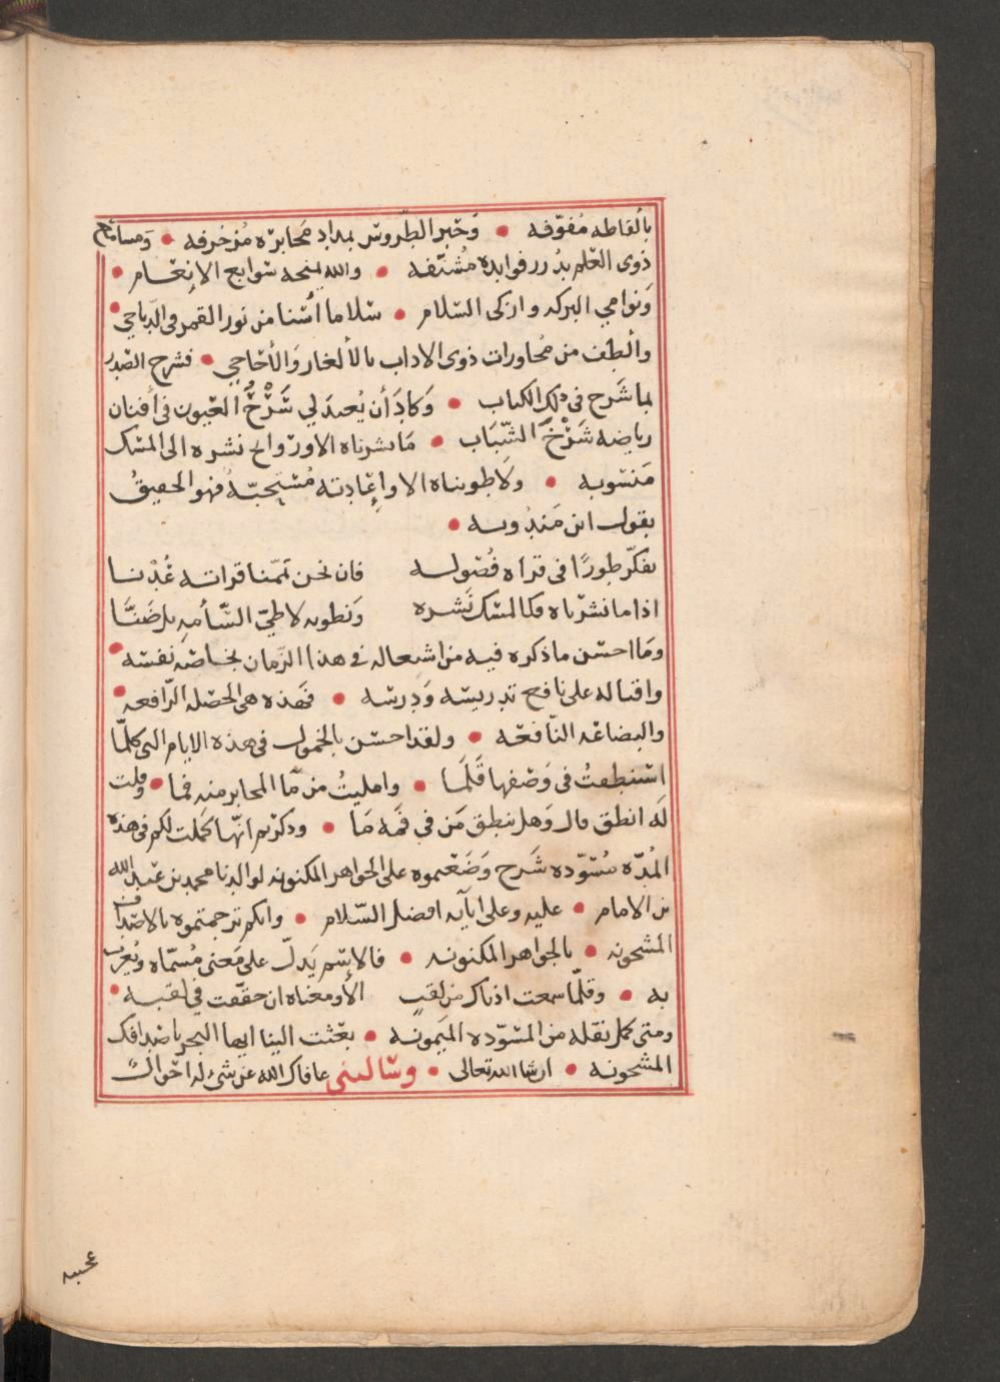 بألفاظه مُفوّفه • وَحَبر الطّروس بمداد محابره مُزخرفه • وَمسامع
ذوى العلم بدُرر فوايده مُشنّفه • والله يمنحه سَوابع الانعام •
وَنوامي البركه وازكى السّلام • سَلاما أسنا من نور القمر في الدّياجي •
والطف من مُحاورات ذوى الاداب بالألغاز وَالأحاجي • فشرح الصّدر
بما شَرح فى ذلك الكتاب • وَكادَ أن يُعيدَ لي شَرْخُ العيون فى أفنان
رياضه شَرْخَ الشّبَاب • مَا نشرناه الا وَروائح نشره الى المسك
مَنسوبه • ولا طويناه الا وإعادته مُستحبّه فهو الحقيقُ
بقول ابن مَندُويه •
يفكّر طورًا فى قراه فُصوله فان نحن تمّمنا قراته عُدْنا
اذا ما نشرناه فكالمسك نَشره وَنطويه لا طيّ السّأمه بل ضَنّا
ومَا احسن ما ذكره فيه من اشتعاله فى هذا الزمان بخاصّه نفسه •
واقباله على نافع تدريسه وَدرسه • فهذه هى الخصله الرّافعه •
والبضاعه النّافعه • ولقد احسن بالخمول فى هذه الايام التى كلّما
استنطفتُ فى وَصفها قَلَمَا • وامليتُ من مآ المحابر منه فما • وقلت
لَه انطق قال وَهل ينطق مَن في فَمه مَا • وذكرتم انّها كملت لكم فى هذه
المُدّه مسَوّده شَرح وَضَعتموه على الجواهر المكنونه لوالدنا محمد بن عبد الله
بن الامام • عليه وعلى آبآيه افضل السّلام • وانكم ترجمتموه بالاصداف
المشحونه • بالجواهر المكنونه • فالإسم يَدلّ على مَعنى مُسمّاه وَيُعرب
به • وقلّما سمعت اذناك من لقبٍ الا ومعناه ان حققت في لقبه •
ومتى كمل نقله من المسوّده الميَمونه • بعثت الينا ايها البحر باصدافك
المشحونه • ان شا الله تعالى • وسَالتنى عافاك الله عن شىء له احوالٌ
عجيبه